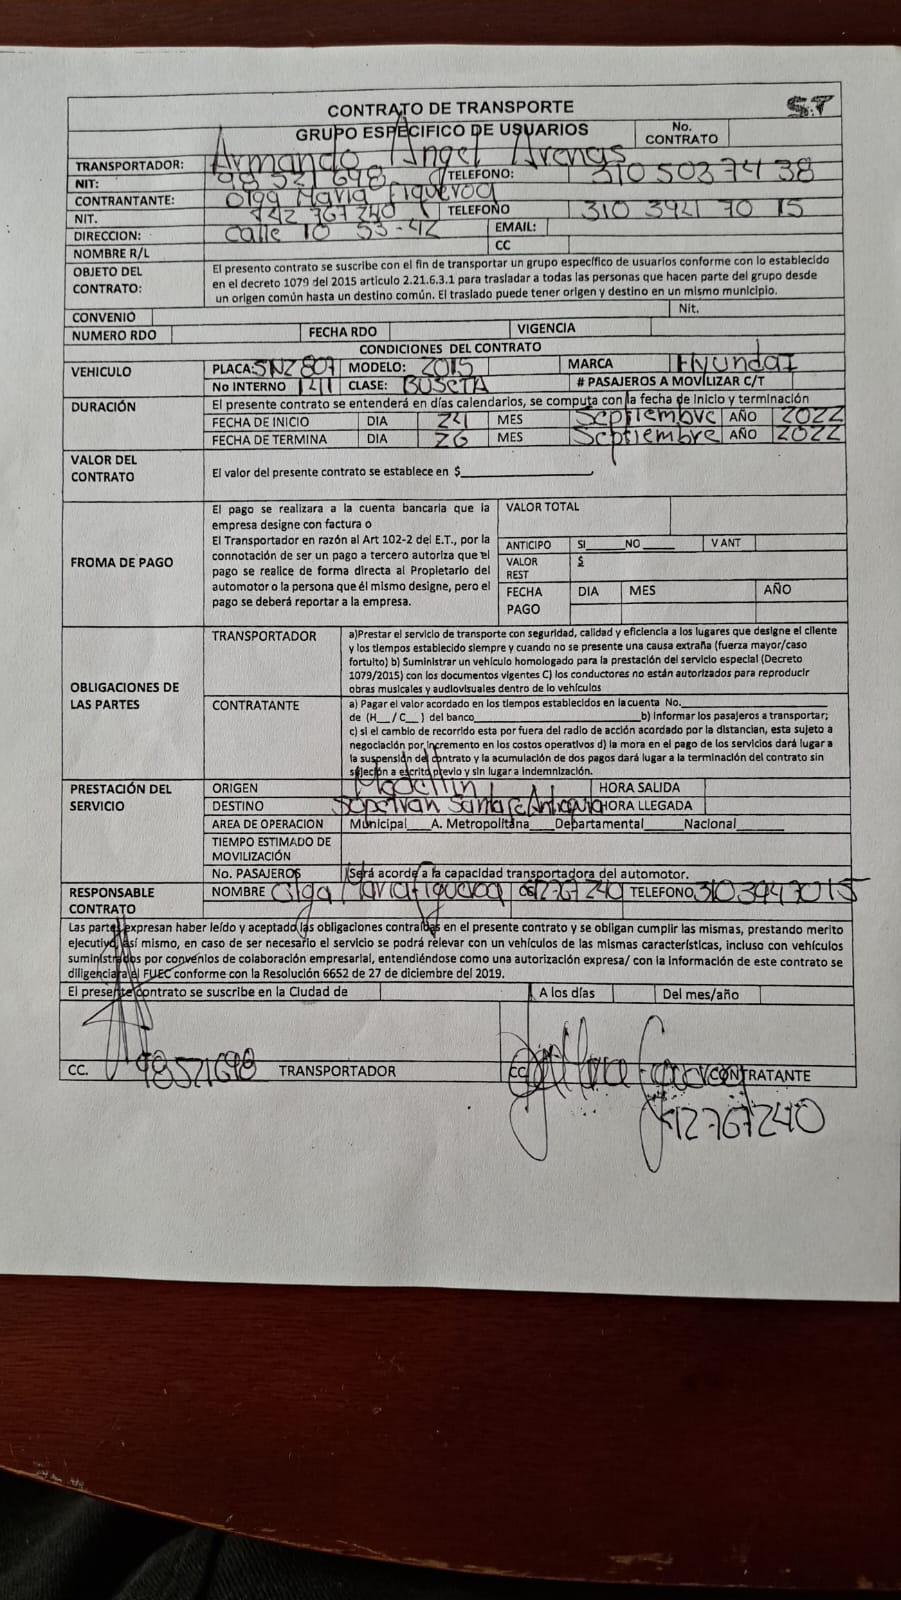 CONTRATO DE TRANSPORTE
S.T
GRUPO ESPECIFICO DE USUARIOS No. CONTRATO
TRANSPORTADOR: Armando Angel Arenas
NIT: 98521698 TELEFONO: 310 503 74 38
CONTRANTANTE: Olga Maria Figueroa
NIT. 42 767 240 TELEFONO 310 394 70 15
DIRECCION: calle 10 53-42 EMAIL:
NOMBRE R/L CC
OBJETO DEL CONTRATO: El presento contrato se suscribe con el fin de transportar un grupo específico de usuarios conforme con lo establecido
en el decreto 1079 del 2015 articulo 2.21.6.3.1 para trasladar a todas las personas que hacen parte del grupo desde
un origen común hasta un destino común. El traslado puede tener origen y destino en un mismo municipio.
CONVENIO Nit.
NUMERO RDO FECHA RDO VIGENCIA
CONDICIONES DEL CONTRATO
VEHICULO PLACA: SNZ 807 MODELO: 2015 MARCA HyundaI
No INTERNO 1211 CLASE: BUSETA # PASAJEROS A MOVILIZAR C/T
DURACIÓN El presente contrato se entenderá en días calendarios, se computa con la fecha de inicio y terminación
FECHA DE INICIO DIA 24 MES Septiembre AÑO 2022
FECHA DE TERMINA DIA 26 MES Septiembre AÑO 2022
VALOR DEL CONTRATO El valor del presente contrato se establece en $
FROMA DE PAGO El pago se realizara a la cuenta bancaria que la
empresa designe con factura o
El Transportador en razón al Art 102-2 del E.T., por la
connotación de ser un pago a tercero autoriza que el
pago se realice de forma directa al Propietario del
automotor o la persona que él mismo designe, pero el
pago se deberá reportar a la empresa.
VALOR TOTAL
ANTICIPO SI NO V ANT
VALOR REST $
FECHA PAGO DIA MES AÑO
OBLIGACIONES DE LAS PARTES
TRANSPORTADOR a)Prestar el servicio de transporte con seguridad, calidad y eficiencia a los lugares que designe el cliente
y los tiempos establecido siempre y cuando no se presente una causa extraña (fuerza mayor/caso
fortuito) b) Suministrar un vehículo homologado para la prestación del servicio especial (Decreto
1079/2015) con los documentos vigentes C) los conductores no están autorizados para reproducir
obras musicales y audiovisuales dentro de lo vehículos
CONTRATANTE a) Pagar el valor acordado en los tiempos establecidos en la cuenta No.
de (H__/C__) del banco b) Informar los pasajeros a transportar;
c) si el cambio de recorrido esta por fuera del radio de acción acordado por la distancian, esta sujeto a
negociación por incremento en los costos operativos d) la mora en el pago de los servicios dará lugar a
la suspensión del contrato y la acumulación de dos pagos dará lugar a la terminación del contrato sin
sujeción a escrito previo y sin lugar a indemnización.
PRESTACIÓN DEL SERVICIO
ORIGEN Medellin HORA SALIDA
DESTINO Sopetran Santa fe Antioquia HORA LLEGADA
AREA DE OPERACION Municipal___A. Metropolitana___Departamental____Nacional____
TIEMPO ESTIMADO DE MOVILIZACIÓN
No. PASAJEROS Será acorde a la capacidad transportadora del automotor.
RESPONSABLE CONTRATO NOMBRE Olga Maria figueroa 42767240 TELEFONO 3103947015
Las partes expresan haber leído y aceptado las obligaciones contraídas en el presente contrato y se obligan cumplir las mismas, prestando merito
ejecutivo, así mismo, en caso de ser necesario el servicio se podrá relevar con un vehículos de las mismas características, incluso con vehículos
suministrados por convenios de colaboración empresarial, entendiéndose como una autorización expresa/ con la información de este contrato se
diligenciara el FUEC conforme con la Resolución 6652 de 27 de diciembre del 2019.
El presente contrato se suscribe en la Ciudad de A los días Del mes/año
CC. 98521698 TRANSPORTADOR CC CONTRATANTE
42767240